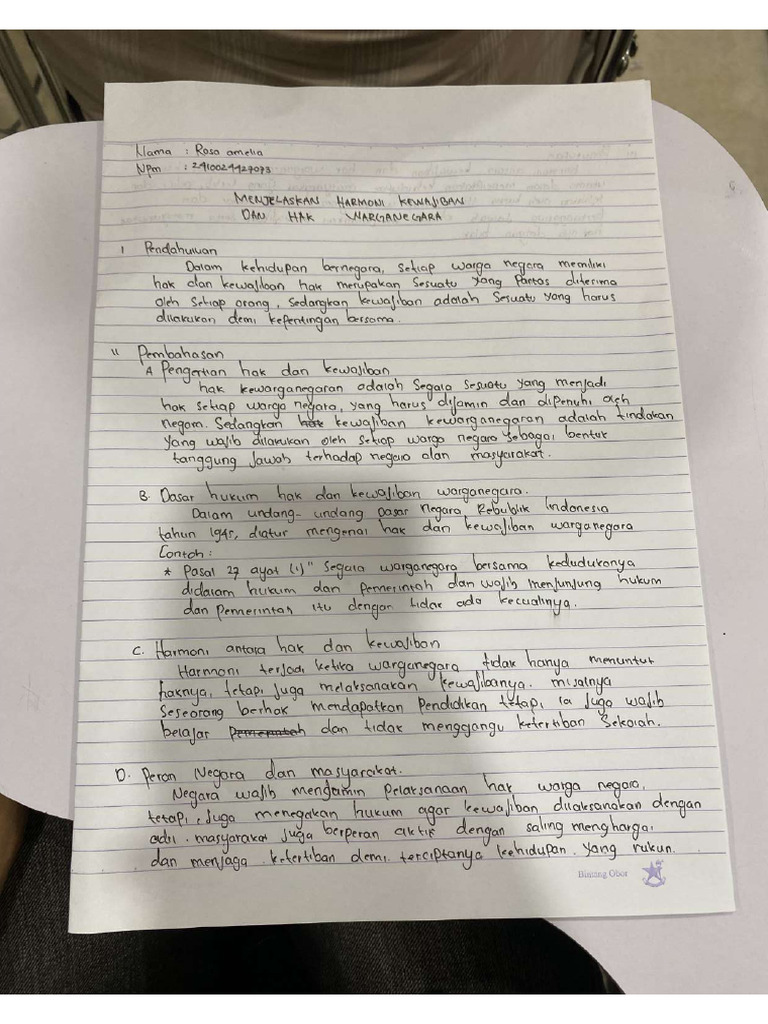 Nama : Rosa amelia
Npm : 2410024427073
MENJELASKAN HARMONI KEWAJIBAN
DAN HAK WARGANEGARA
I Pendahuluan
Dalam kehidupan bernegara, setiap warga negara memiliki
hak dan kewajiban hak merupakan sesuatu yang Pantas diterima
oleh setiap orang, sedangkan kewajiban adalah sesuatu yang harus
dilakukan demi kepentingan bersama.
II Pembahasan
A Pengertian hak dan kewajiban
hak kewarganegaran adalah segala sesuatu yang menjadi
hak setiap warga negara, yang harus dijamin dan dipenuhi oleh
negara. Sedangkan hak kewajiban kewarganegaran adalah tindakan
yang wajib dilakukan oleh setiap warga negara sebagai bentuk
tanggung jawab terhadap negara dan masyarakat.
B. Dasar hukum hak dan kewajiban warganegara.
Dalam undang-undang dasar negara Rebublik Indonesia
tahun 1945, diatur mengenai hak dan kewajiban warganegara
Contoh :
* Pasal 27 ayat (1) " Segala warganegara bersama kedudukannya
didalam hukum dan pemerintah dan wajib menjunjung hukum
dan pemerintah itu dengan tidak ada kecualinya.
C. Harmoni antara hak dan kewajiban
Harmoni terjadi ketika warganegara tidak hanya menuntut
haknya, tetapi juga melaksanakan kewajibanya. misalnya
seseorang berhak mendapatkan Pendidikan tetapi ia juga wajib
belajar pemerintah dan tidak menggangu ketertiban sekolah.
D. Peran Negara dan masyarakat.
Negara wajib menjamin pelaksanaan hak warga negara,
tetapi juga menegakan hukum agar kewajiban dilaksanakan dengan
adil. masyarakat juga berperan aktif dengan saling menghargai
dan menjaga ketertiban demi terciptanya kehidupan yang rukun.
Bintang Obor